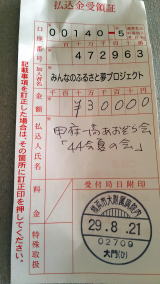 払込金受領証
口座番号
00140-5
472963
加入者名
みんなのふるさと夢プロジェクト
金額
千 百 十 万 千 百 十 円
¥30000
払込人氏名
甲府一高あおぞら会
「44会夏の会」
料金
受付局日附印
特殊取扱
29.8.21
02709
記載事項を訂正した場合は、その箇所に訂正印を押してください。